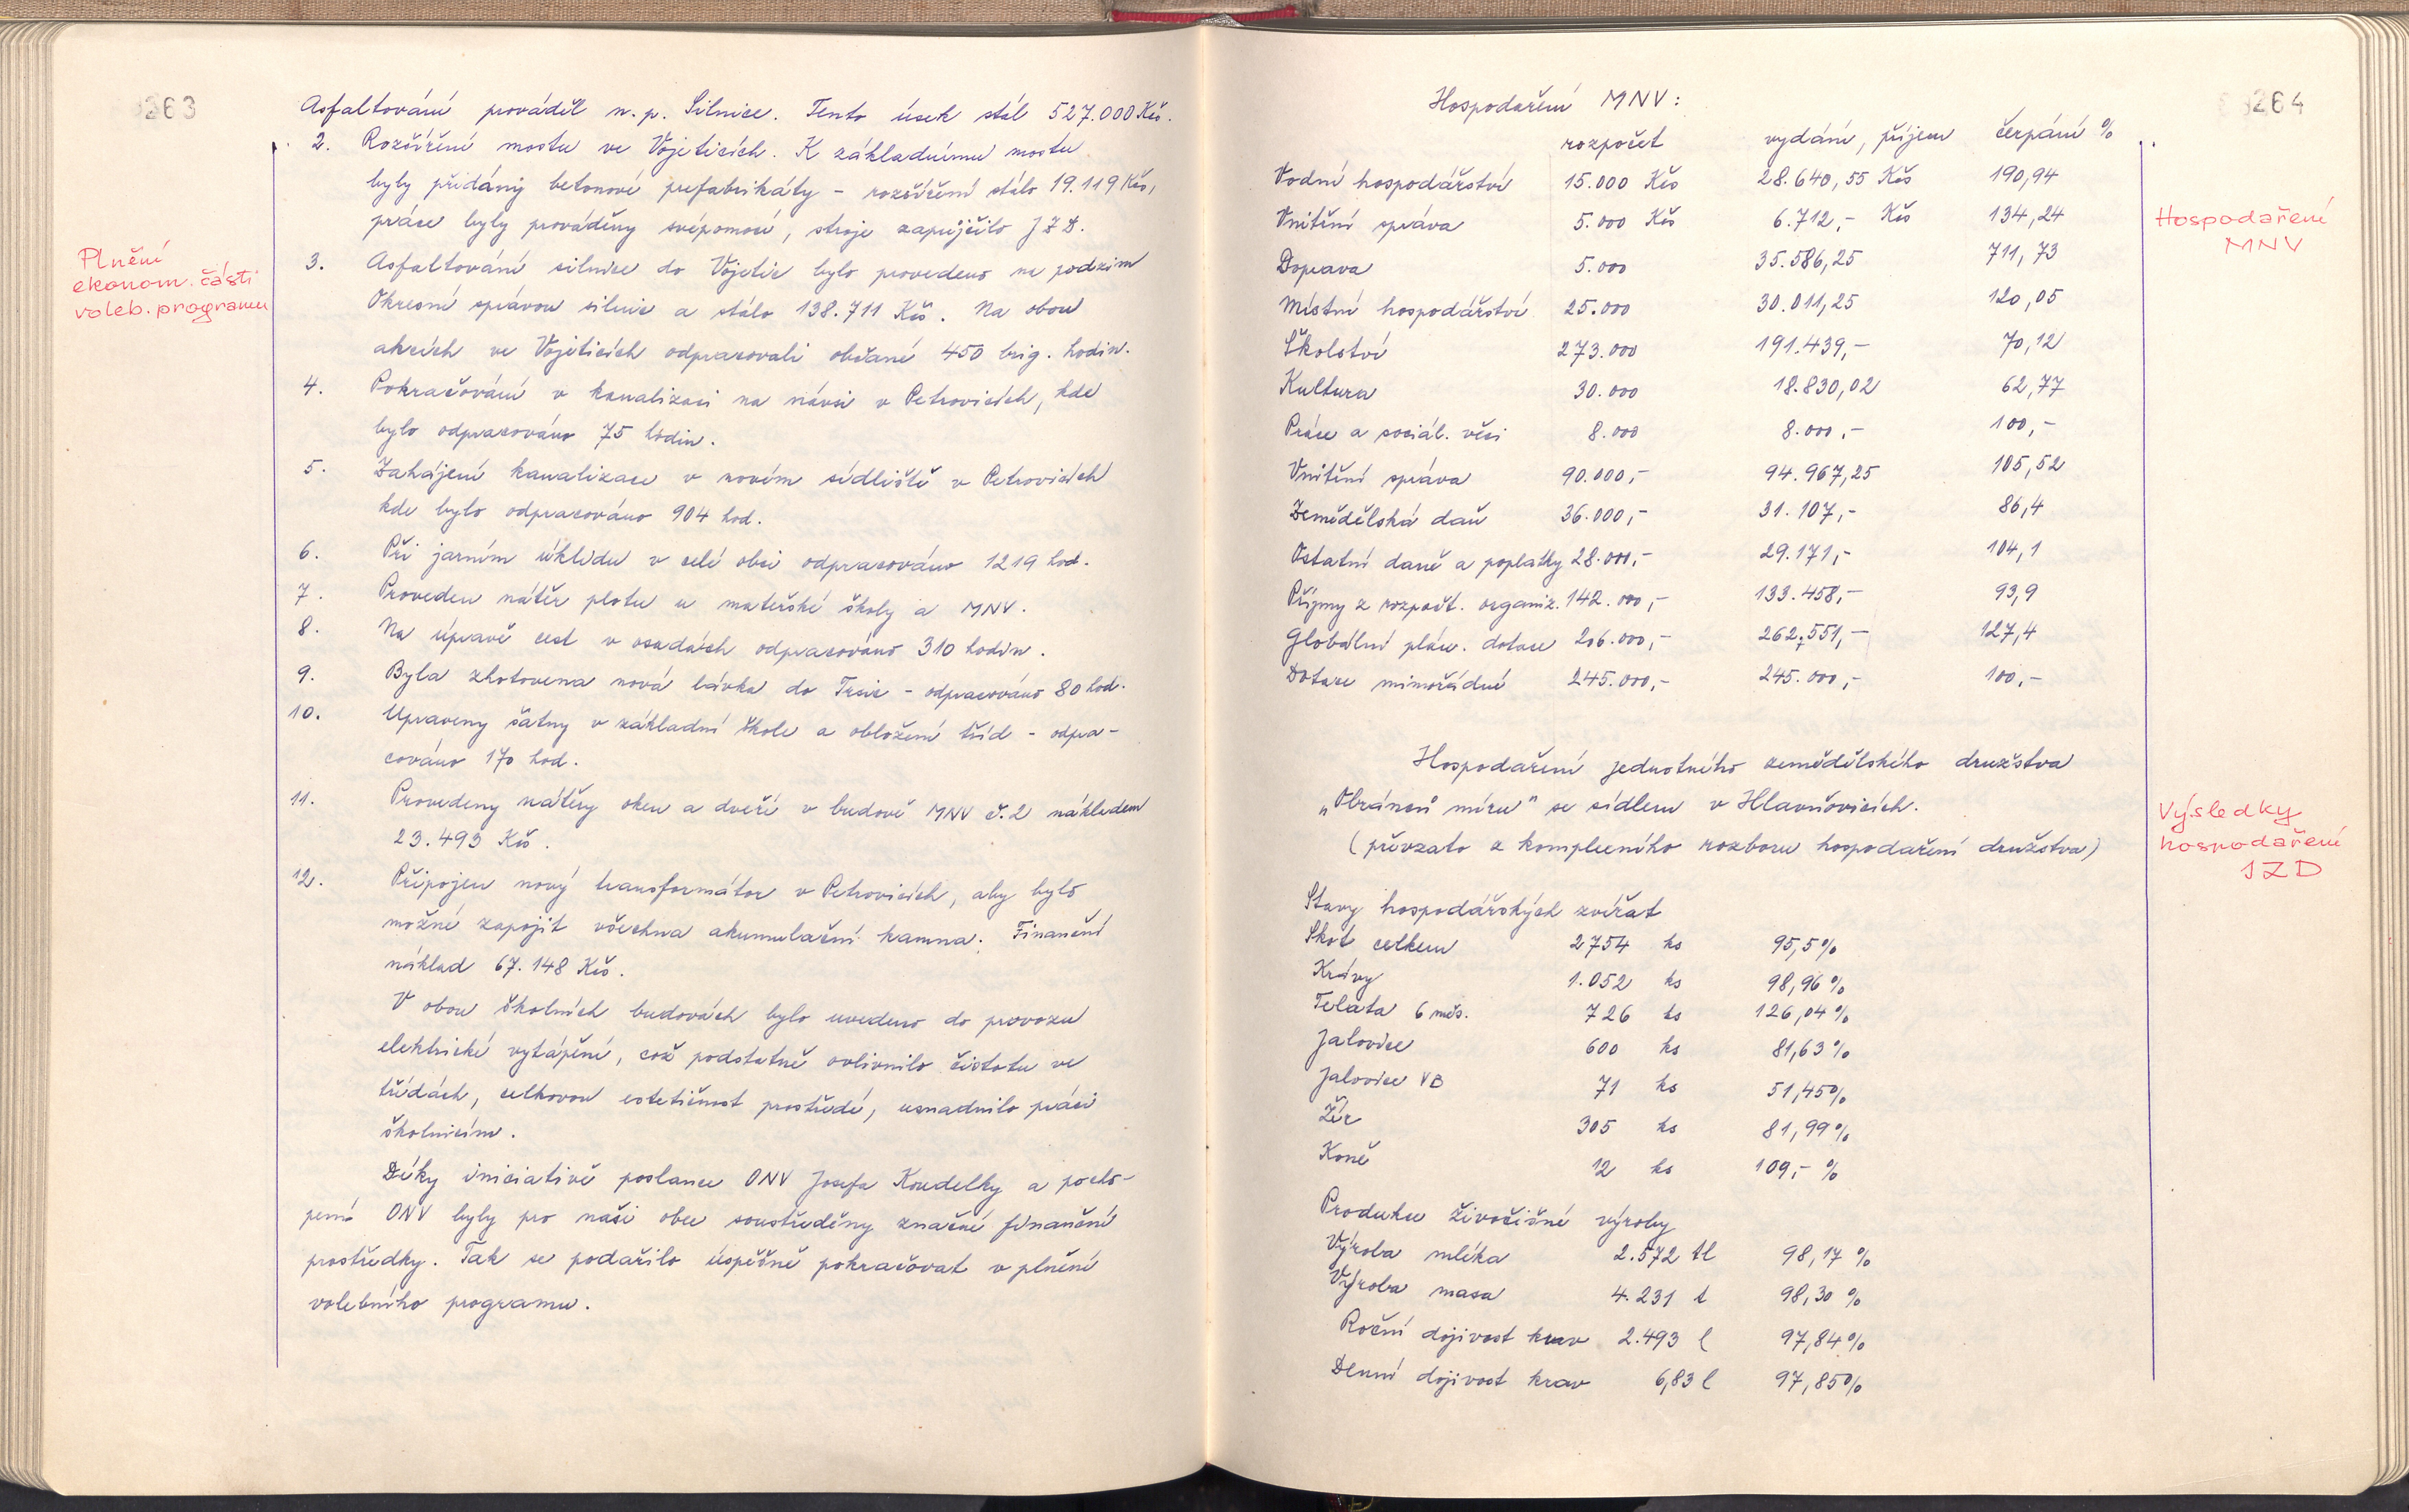 263
Plnění
ekonom. části
voleb. programu
Asfaltování prováděl n.p. Silnice. Tento úsek stál 527.000 Kčs.
2. Rozšíření mostu ve Vojeticích. K základnímu mostu
byly přidány betonové prefabrikáty - rozšíření stálo 19.119 Kčs,
práce byly prováděny svépomocí, stroje zapůjčilo JZD.
3. Asfaltování silnice do Vojetic bylo provedeno na podzim
Okresní správou silnic a stálo 138.711 Kčs. Na obou
akcích ve Vojeticích odpracovali občané 450 brig. hodin.
4. Pokračování v kanalizaci na návsi v Petrovicích, kde
bylo odpracováno 75 hodin.
5. Zahájení kanalizace v novém sídlišti v Petrovicích
kde bylo odpracováno 904 hod.
6. Při jarním úklidu v celé obci odpracováno 1219 hod.
7. Proveden nátěr plotu u mateřské školy a MNV.
8. Na úpravě cest v osadách odpracováno 310 hodin.
9. Byla zhotovena nová lávka do Trsic - odpracováno 80 hod.
10. Upraveny šatny v základní škole a obložení tříd - odpra-
cováno 170 hod.
11. Provedeny nátěry oken a dveří v budově MNV č.2 nákladem
23.493 Kčs.
12. Připojen nový transformátor v Petrovicích, aby bylo
možné zapojit všechna akumulační kamna. Finanční
náklad 67.148 Kčs.
V obou školních budovách bylo uvedeno do provozu
elektrické vytápění, což podstatně ovlivnilo čistotu ve
třídách, celkovou estetičnost prostředí, usnadnilo práci
školnicím.
Díky iniciativě poslance ONV Josefa Koudelky a pocho-
pení ONV byly pro naši obec soustředěny značné finanční
prostředky. Tak se podařilo úspěšně pokračovat v plnění
volebního programu.
264
Hospodaření MNV:
rozpočet vydání, příjem čerpání %
Vodní hospodářství 15.000 Kčs 28.640,55 Kčs 190,94
Vnitřní správa 5.000 Kčs 6.712,- Kčs 134,24
Doprava 5.000 35.586,25 711,73
Místní hospodářství 25.000 30.011,25 120,05
Školství 273.000 191.439,- 70,12
Kultura 30.000 18.830,02 62,77
Práce a sociál. věci 8.000 8.000,- 100,-
Vnitřní správa 90.000,- 94.967,25 105,52
Zemědělská daň 36.000,- 31.107,- 86,4
Ostatní daně a poplatky 28.000,- 29.171,- 104,1
Příjmy z rozpočt. organiz. 142.000,- 133.458,- 93,9
Globální plán. dotace 206.000,- 262,551,- 127,4
Dotace mimořádné 245.000,- 245.000,- 100,-
Hospodaření
MNV
Hospodaření jednotného zemědělského družstva
„Obránců míru" se sídlem v Hlavňovicích.
(převzato z komplexního rozboru hospodaření družstva)
Výsledky
hospodaření
JZD
Stavy hospodářských zvířat
Skot celkem 2754 ks 95,5%
Krávy 1.052 ks 98,96%
Telata 6 měs. 726 ks 126,04%
Jalovice 600 ks 81,63%
Jalovice VB 71 ks 51,45%
Žír 305 ks 81,99%
Koně 12 ks 109,- %
Produkce živočišné výroby
Výroba mléka 2.572 tl 98,17 %
Výroba masa 4.231 t 98,30 %
Roční dojivost krav 2.493 l 97,84%
Denní dojivost krav 6,83 l 97,85%